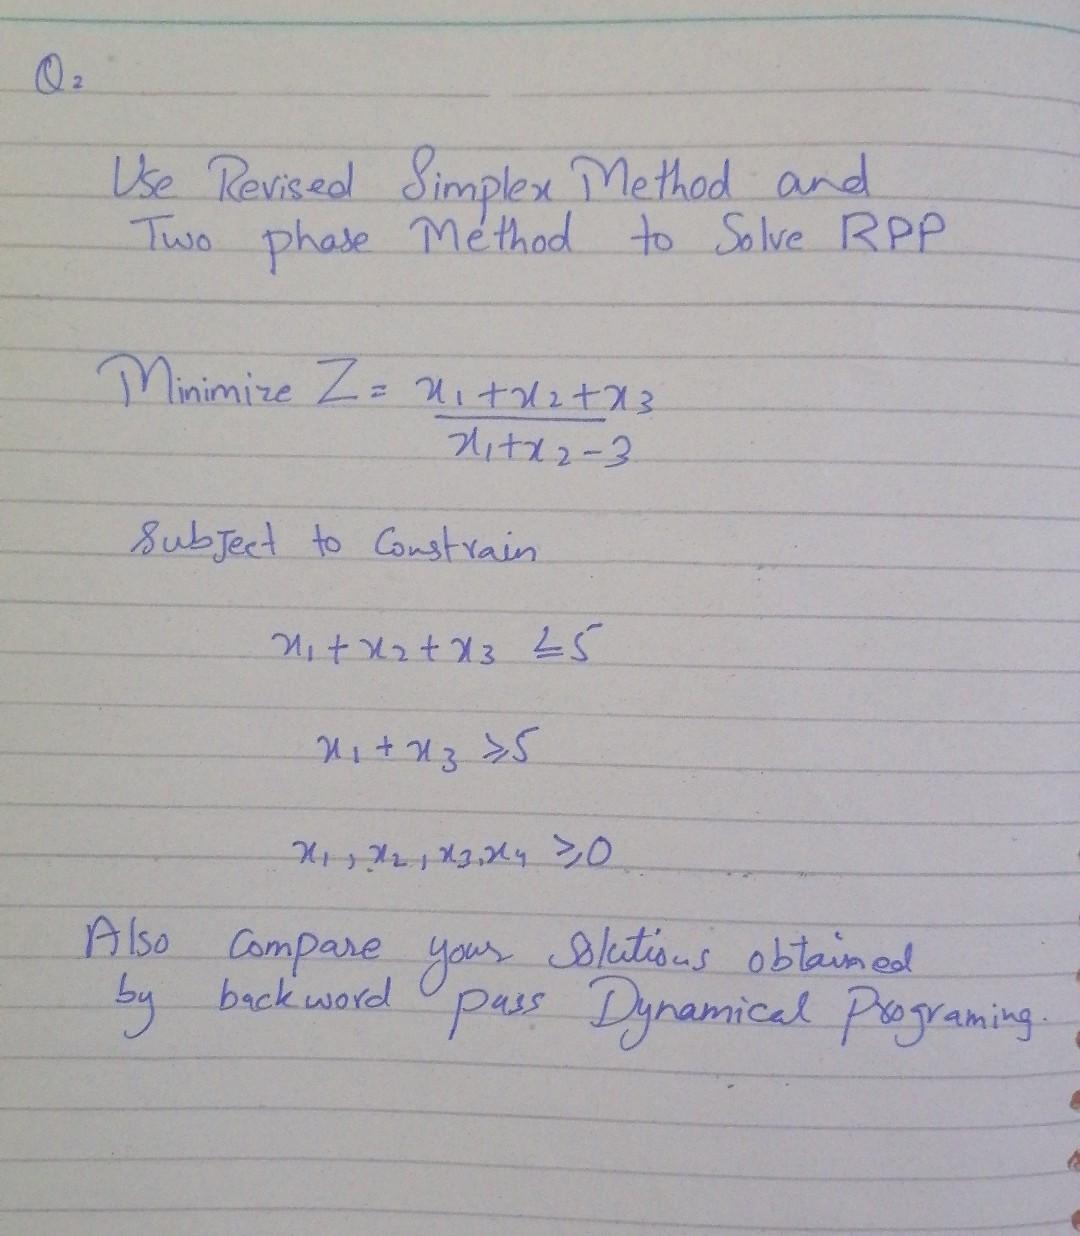 Q2
Use Revised Simplex Method and
Two phase Method to Solve RPP
Minimize Z = x1+x2+x3
x1+x2-3
Subject to Constrain
x1+x2+x3 ≤5
x1+x3 ≥5
x1, x2, x3, x4 ≥0
Also Compare your Solutions obtained
by backword pass Dynamical Programing.